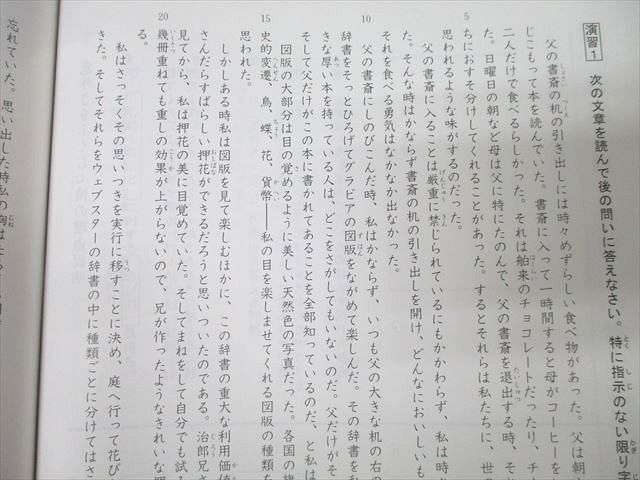 演習1 次の文章を読んで後の問いに答えなさい。特に指示のない限り字
父の書斎の机の引き出しには時々めずらしい食べ物があった。父は朝
じこもって本を読んでいた。書斎に入って一時間すると母がコーヒーを
二人だけで食べるらしかった。それは舶来のチョコレートだったり、チ
た。日曜日の朝など母は父に特にたのんで、父の書斎を退出する時、そ
5
ちにおすそ分けしてくれることがあった。するとそれらは私たちに、世の
思われるような味がするのだった。
父の書斎に入ることは厳重に禁じられているにもかかわらず、私は時
た。そんな時はかならず書斎の机の引き出しを開け、どんなにおいしいも
それを食べる勇気はなかなか出なかった。
10
父の書斎にしのびこんだ時、私はかならず、いつも父の大きな机の右の
辞書をそっとひろげてグラビアの図版をながめて楽しんだ。その辞書を
きな厚い本を持っている人は、どこをさがしてもいないのだ。父だけがそ
そして父だけがこの本に書かれてあることを全部知っているのだ、と私は
図版の大部分は目の覚めるように美しい天然色の写真だった。各国の旗
15
史的変遷、鳥、蝶、花、貨幣――私の目を楽しませてくれる図版の種類を
思われた。
しかしある時私は図版を見て楽しむほかに、この辞書の重大な利用価値
さんだらすばらしい押花ができるだろうと思いついたのである。治郎兄さ
見てから、私は押花の美に目覚めていた。そしてまねをして自分でも試み
20
幾冊重ねても重しの効果が上がらないので、兄が作ったようなきれいな押
私はさっそくその思いつきを実行に移すことに決め、庭へ行って花び
きた。そしてそれらをウェブスターの辞書の中に種類ごとに分けてはさ
忘れていた。思い出した時私の胸は